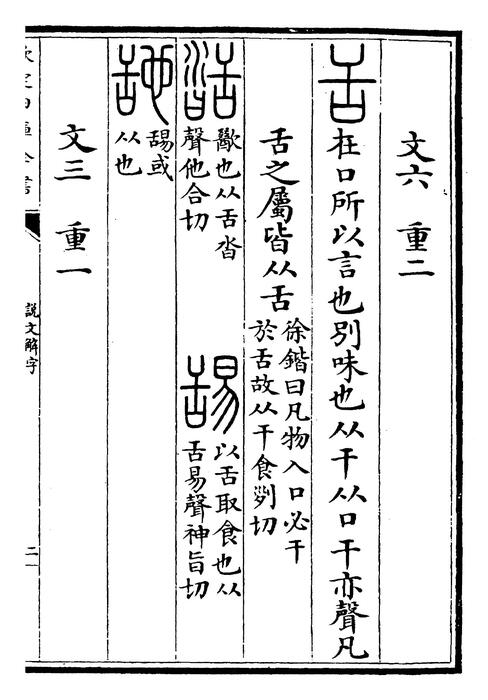 文六 重二
舌 在口所以言也别味也从干从口干亦聲凡
舌之屬皆从舌
徐鍇曰凡物入口必干
於舌故从干食列切
𦧟
歠也从舌沓
聲他合切
舓
以舌取食也从
舌易聲神旨切
𦧇
舓或
从也
文三 重一
說文解字
二